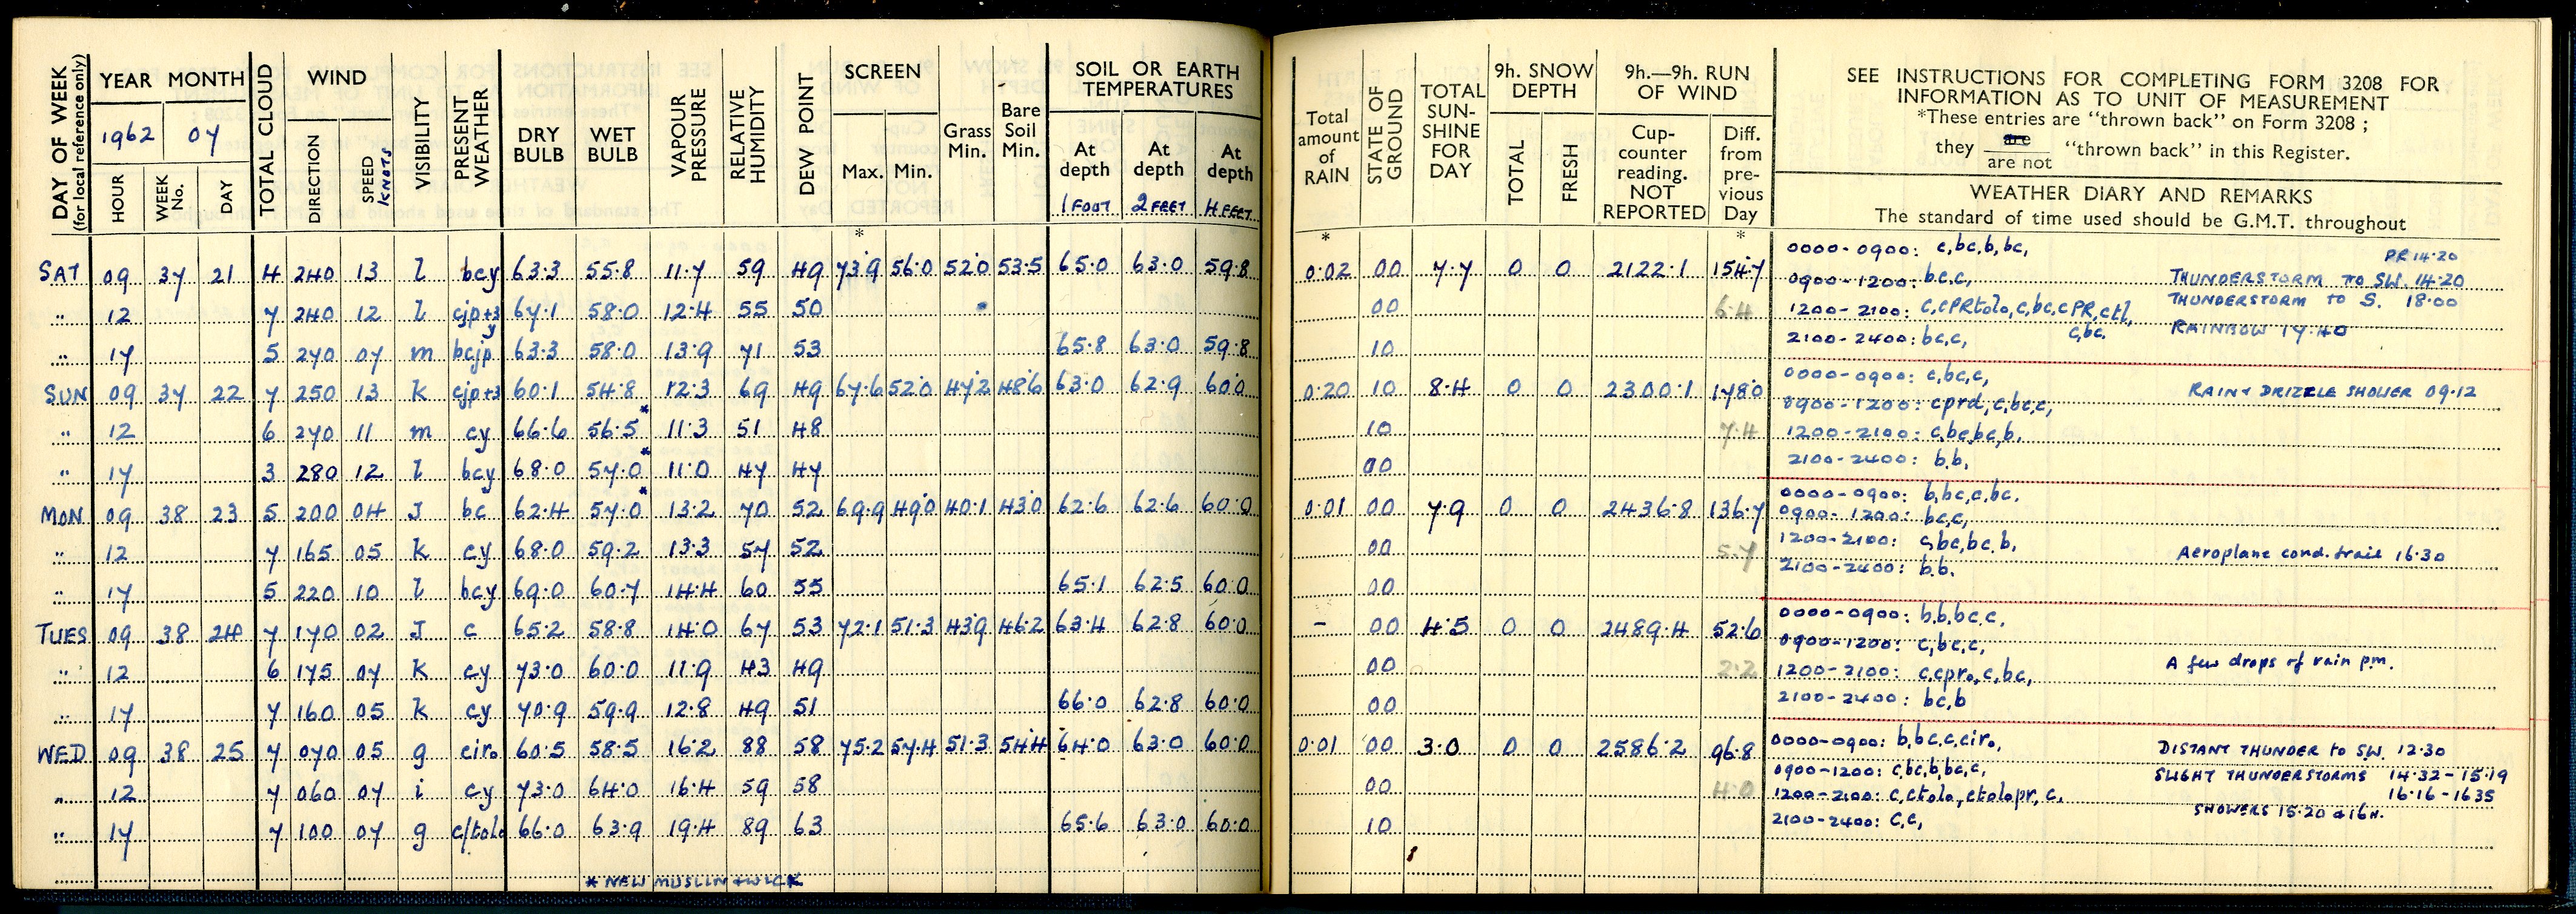 DAY OF WEEK (for local reference only) YEAR MONTH TOTAL CLOUD WIND VISIBILITY PRESENT WEATHER DRY BULB WET BULB VAPOUR PRESSURE RELATIVE HUMIDITY DEW POINT SCREEN Grass Min. Bare Soil Min. SOIL OR EARTH TEMPERATURES
1962 07
HOUR WEEK No. DAY DIRECTION SPEED KNOTS Max. Min. At depth At depth At depth
1 FOOT 2 FEET 4 FEET
*
SAT 09 37 21 4 240 13 l bcy 63.3 55.8 11.7 59 49 73.9 56.0 52.0 53.5 65.0 63.0 59.8
" 12 7 240 12 l cjp+3y 67.1 58.0 12.4 55 50
" 17 5 270 07 m bcjp 63.3 58.0 13.9 71 53 65.8 63.0 59.8
SUN 09 37 22 7 250 13 k cjp+3 60.1 54.8 12.3 69 49 67.6 52.0 47.2 48.6 63.0 62.9 60.0
" 12 6 270 11 m cy 66.6 56.5* 11.3 51 48
" 17 3 280 12 l bcy 68.0 57.0* 11.0 47 47
MON 09 38 23 5 200 04 J bc 62.4 57.0* 13.2 70 52 69.9 49.0 40.1 43.0 62.6 62.6 60.0
" 12 7 165 05 k cy 68.0 59.2 13.3 57 52
" 17 5 220 10 l bcy 69.0 60.7 14.4 60 55 65.1 62.5 60.0
TUES 09 38 24 7 170 02 J c 65.2 58.8 14.0 67 53 72.1 51.3 43.9 46.2 63.4 62.8 60.0
" 12 6 175 07 k cy 73.0 60.0 11.9 43 49
" 17 7 160 05 k cy 70.9 59.9 12.8 49 51 66.0 62.8 60.0
WED 09 38 25 7 070 05 g ciro 60.5 58.5 16.2 88 58 75.2 57.4 51.3 54.4 64.0 63.0 60.0
" 12 7 060 07 i cy 73.0 64.0 16.4 59 58
" 17 7 100 07 g c/tolo 66.0 63.9 19.4 89 63 65.6 63.0 60.0
* NEW MUSLIN + WICK
Total amount of RAIN STATE OF GROUND TOTAL SUN-SHINE FOR DAY 9h. SNOW DEPTH 9h.—9h. RUN OF WIND
TOTAL FRESH Cup-counter reading. NOT REPORTED Diff. from pre-vious Day
* *
SEE INSTRUCTIONS FOR COMPLETING FORM 3208 FOR
INFORMATION AS TO UNIT OF MEASUREMENT
*These entries are "thrown back" on Form 3208 ;
they are / are not "thrown back" in this Register.
WEATHER DIARY AND REMARKS
The standard of time used should be G.M.T. throughout
0.02 00 7.7 0 0 2122.1 154.7
00 6.4
10
0000-0900: c,bc,b,bc, PR 14.20
0900-1200: bc,c, THUNDERSTORM TO SW. 14.20
1200-2100: c,cPRtolo,c,bc,cPR,ctl, c,bc. THUNDERSTORM TO S. 18.00
2100-2400: bc,c, RAINBOW 17.40
0.20 10 8.4 0 0 2300.1 178.0
10 7.4
00
0000-0900: c,bc,c,
0900-1200: cprd,c,bc,c, RAIN + DRIZZLE SHOWER 09.12
1200-2100: c,bc,bc,b.
2100-2400: b,b,
0.01 00 7.9 0 0 2436.8 136.7
00 5.7
00
0000-0900: b,bc,c,bc.
0900-1200: bc,c,
1200-2100: c,bc,bc,b, Aeroplane cond. trail 16.30
2100-2400: b,b.
- 00 4.5 0 0 2489.4 52.6
00 2.2
00
0000-0900: b,b,bc,c,
0900-1200: c,bc,c,
1200-2100: c,cpro,c,bc, A few drops of rain p.m.
2100-2400: bc,b
0.01 00 3.0 0 0 2586.2 96.8
00 4.0
10
0000-0900: b,bc,c,ciro, DISTANT THUNDER to SW. 12.30
0900-1200: c,bc,b,bc,c, SLIGHT THUNDERSTORMS 14.32-15.19
1200-2100: c,ctolo,ctolopr,c. 16.16-1635
2100-2400: c,c, SHOWERS 15.20 & 16H.